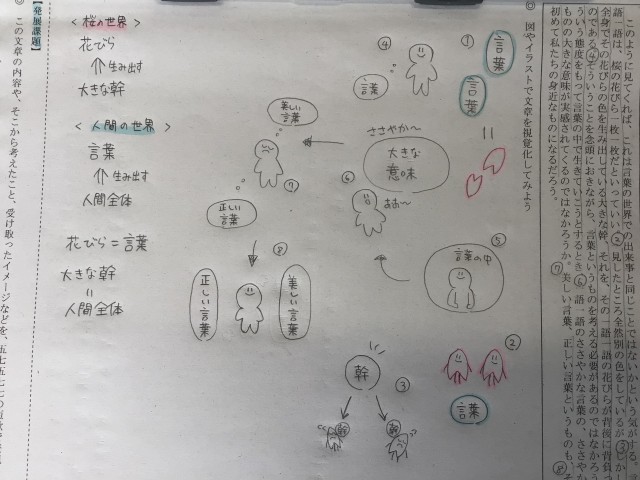 このように見てくれば、これは言葉の世界での出来事と同じことではないかという気がする。
語一語は、桜の花びら一枚一枚だといっていい。②一見したところ全然別の色をしているが、③しかし
全身でその花びらの色を生み出している大きな幹、それを、その一語一語の花びらが背後に背負っ
のである。④そういうことを念頭におきながら、言葉というものを考える必要があるのではなかろうか。
ういう態度をもって言葉の中で生きていこうとするとき、⑥一語一語のささやかな言葉の、ささやか
ものの大きな意味が実感されてくるのではなかろうか。⑦美しい言葉、正しい言葉というものも、⑧そ
初めて私たちの身近なものになるだろう。
◎ 図やイラストで文章を視覚化してみよう
①
言葉
言葉
=
②
言葉
③
幹
幹
幹
④
言葉
⑤
言葉の中
⑥
ささやか〜
大きな
意味
おお〜
⑦
美しい
言葉
正しい
言葉
⑧
美しい言葉
正しい言葉
<桜の世界>
花びら
⇑生み出す
大きな幹
<人間の世界>
言葉
⇑生み出す
人間全体
花びら=言葉
大きな幹
=
人間全体
【発展課題】
◎ この文章の内容や、そこから考えたこと、受け取ったイメージなどを、五七五七七の